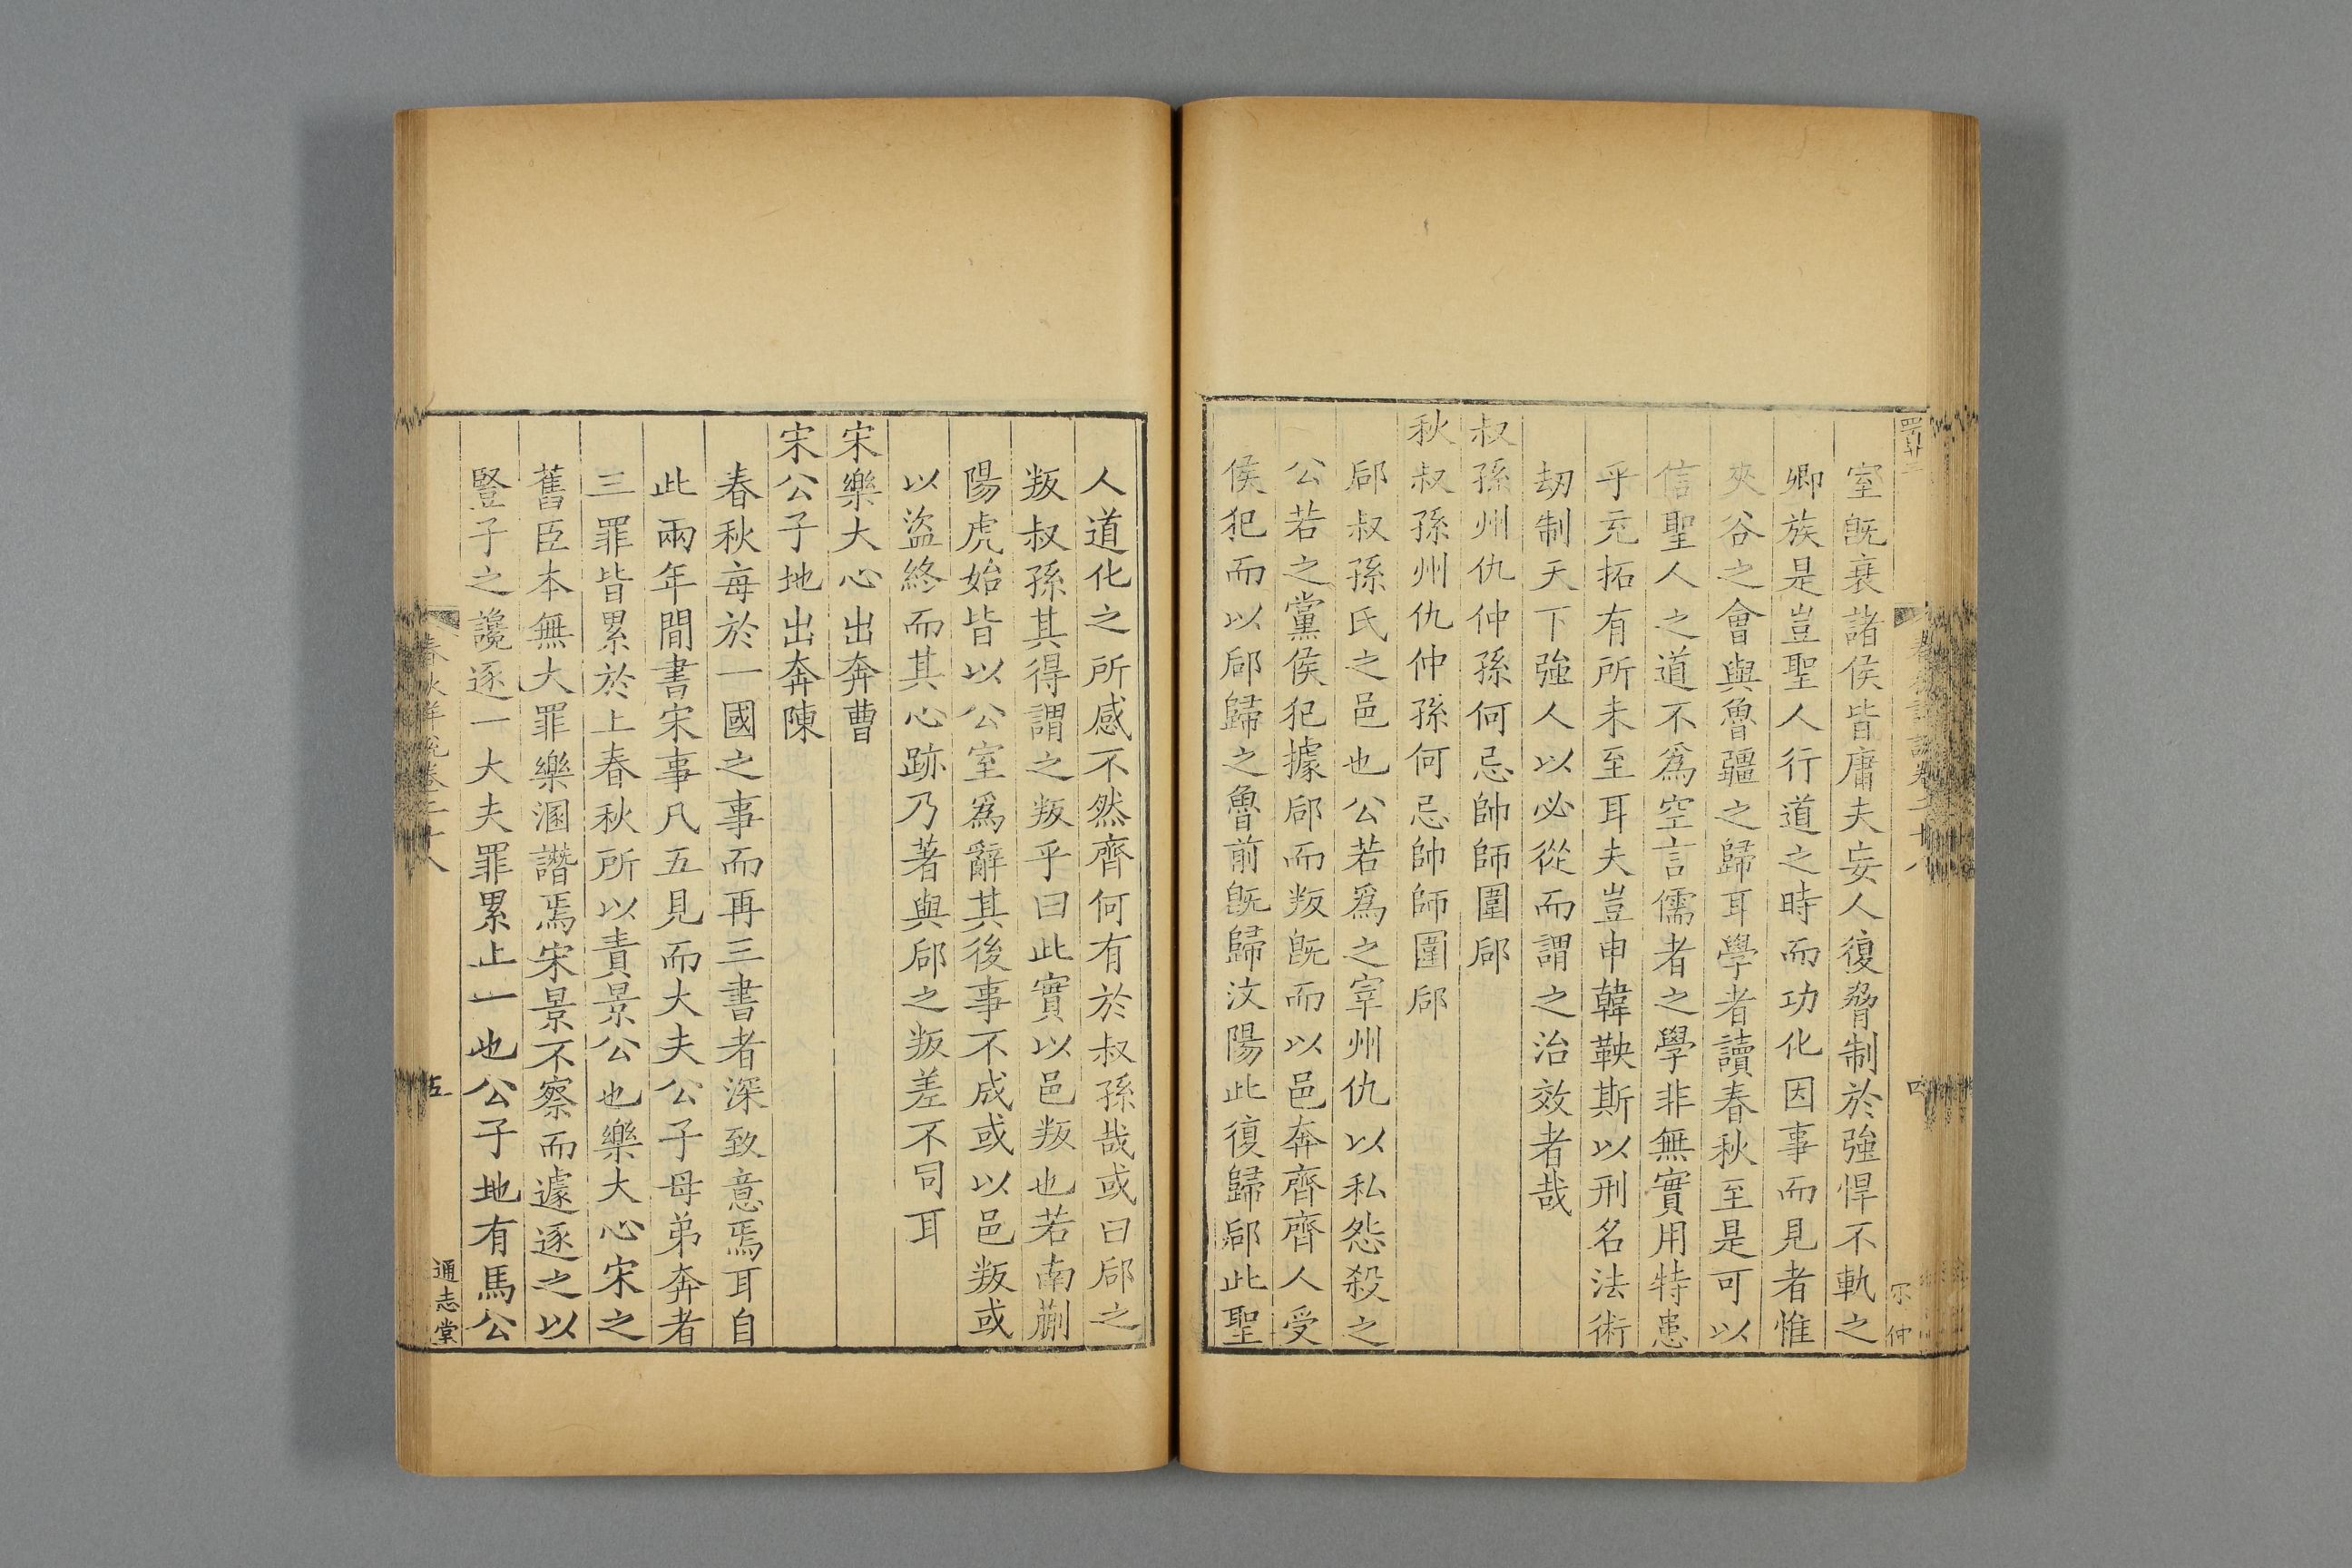 室旣衰諸侯皆庸夫妄人復脅制於強悍不軌之
卿族是豈聖人行道之時而功化因事而見者惟
夾谷之會與魯疆之歸耳學者讀春秋至是可以
信聖人之道不爲空言儒者之學非無實用特患
乎充拓有所未至耳夫豈申韓鞅斯以刑名法術
刼制天下強人以必從而謂之治效者哉
叔孫州仇仲孫何忌帥師圍郈
秋叔孫州仇仲孫何忌帥師圍郈
郈叔孫氏之邑也公若爲之宰州仇以私怨殺之
公若之黨侯犯據郈而叛旣而以邑奔齊齊人受
侯犯而以郈歸之魯前旣歸汶陽此復歸郈此聖
人道化之所感不然齊何有於叔孫哉或曰郈之
叛叔孫其得謂之叛乎曰此實以邑叛也若南蒯
陽虎始皆以公室爲辭其後事不成或以邑叛或
以盜終而其心跡乃著與郈之叛差不同耳
宋樂大心出奔曹
宋公子地出奔陳
春秋每於一國之事而再三書者深致意焉耳自
此兩年間書宋事凡五見而大夫公子母弟奔者
三罪皆累於上春秋所以責景公也樂大心宋之
舊臣本無大罪樂溷譖焉宋景不察而遽逐之以
豎子之讒逐一大夫罪累上一也公子地有馬公
春秋詳說卷二十八
五
通志堂